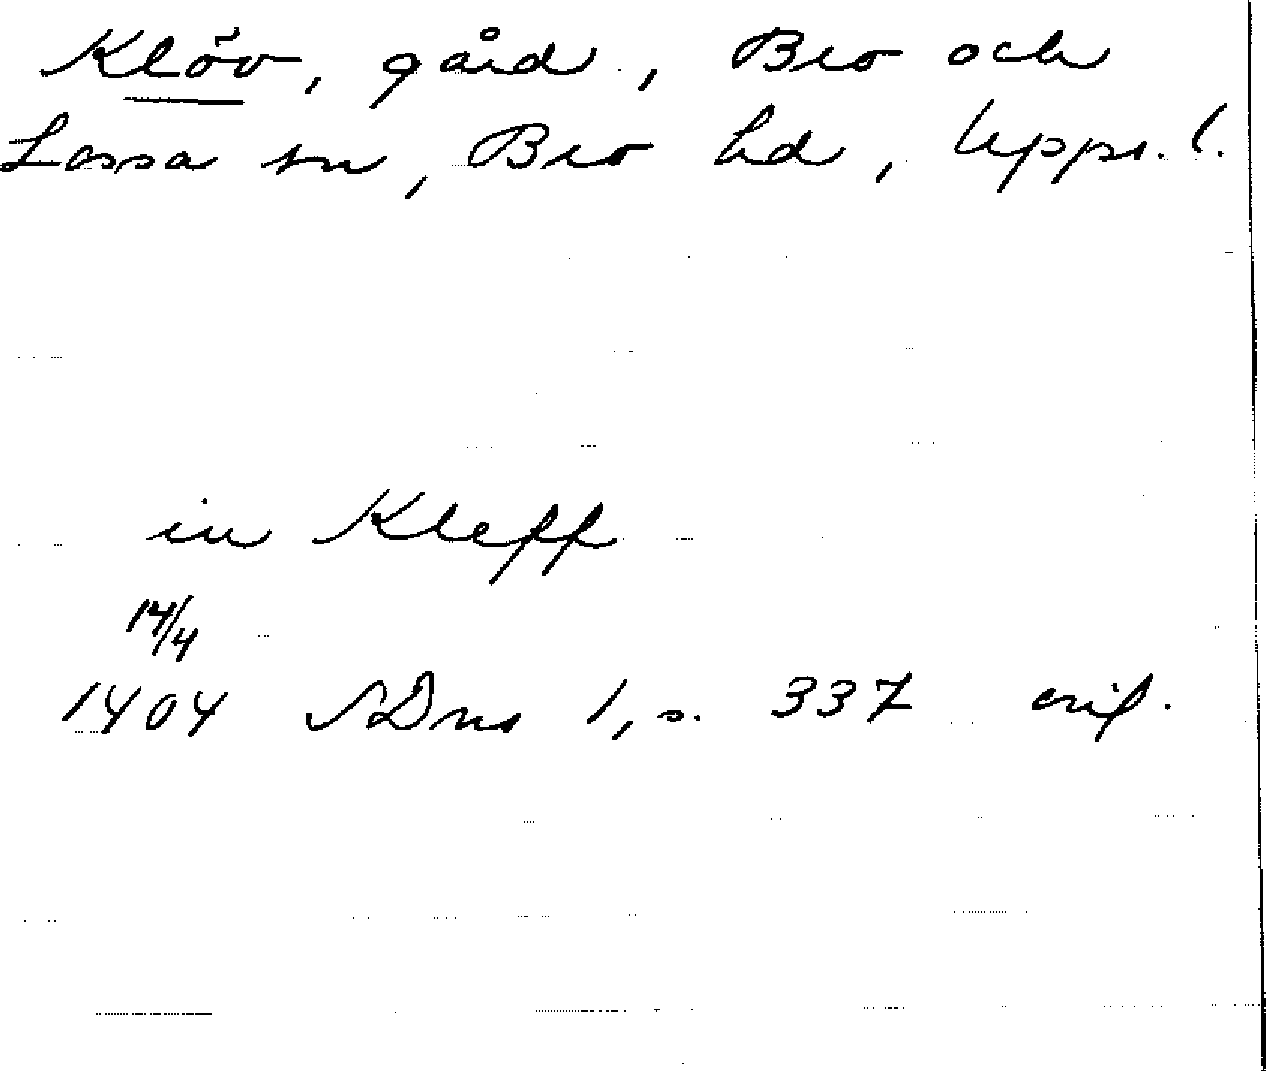 Klöv, gård, Bro och
Lossa sn, Bro hd, Upps. l.
in Kleff
14/4
1404 SDns 1, s. 337 orig.